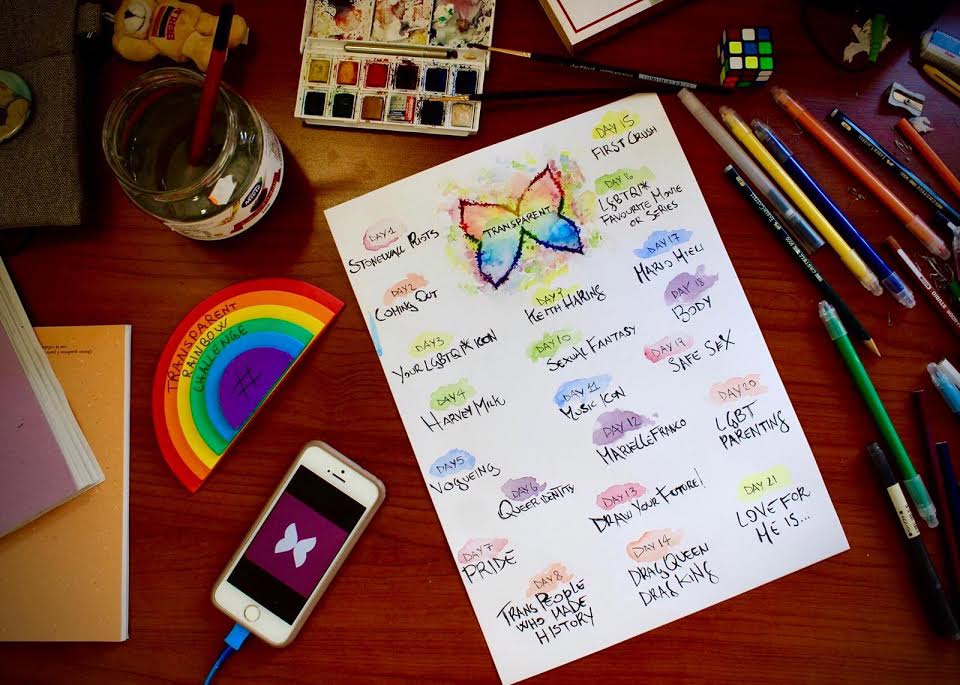 TRANSPARENT
RAINBOW
CHALLENGE
#
TRANSPARENT
DAY 1
STONEWALL RIOTS
DAY 2
COMING OUT
DAY 3
YOUR LGBTQI* ICON
DAY 4
HARVEY MILK
DAY 5
VOGUEING
DAY 6
QUEER IDENTITY
DAY 7
PRIDE
DAY 8
TRANS PEOPLE
WHO MADE
HISTORY
DAY 9
KEITH HARING
DAY 10
SEXUAL FANTASY
DAY 11
MUSIC ICON
DAY 12
MARIELLE FRANCO
DAY 13
DRAW YOUR FUTURE!
DAY 14
DRAG QUEEN
DRAG KING
DAY 15
FIRST CRUSH
DAY 16
LGBTQI*
FAVOURITE MOVIE
OR SERIES
DAY 17
MARIO MIELI
DAY 18
BODY
DAY 19
SAFE SEX
DAY 20
LGBT
PARENTING
DAY 21
LOVE FOR
ME IS...